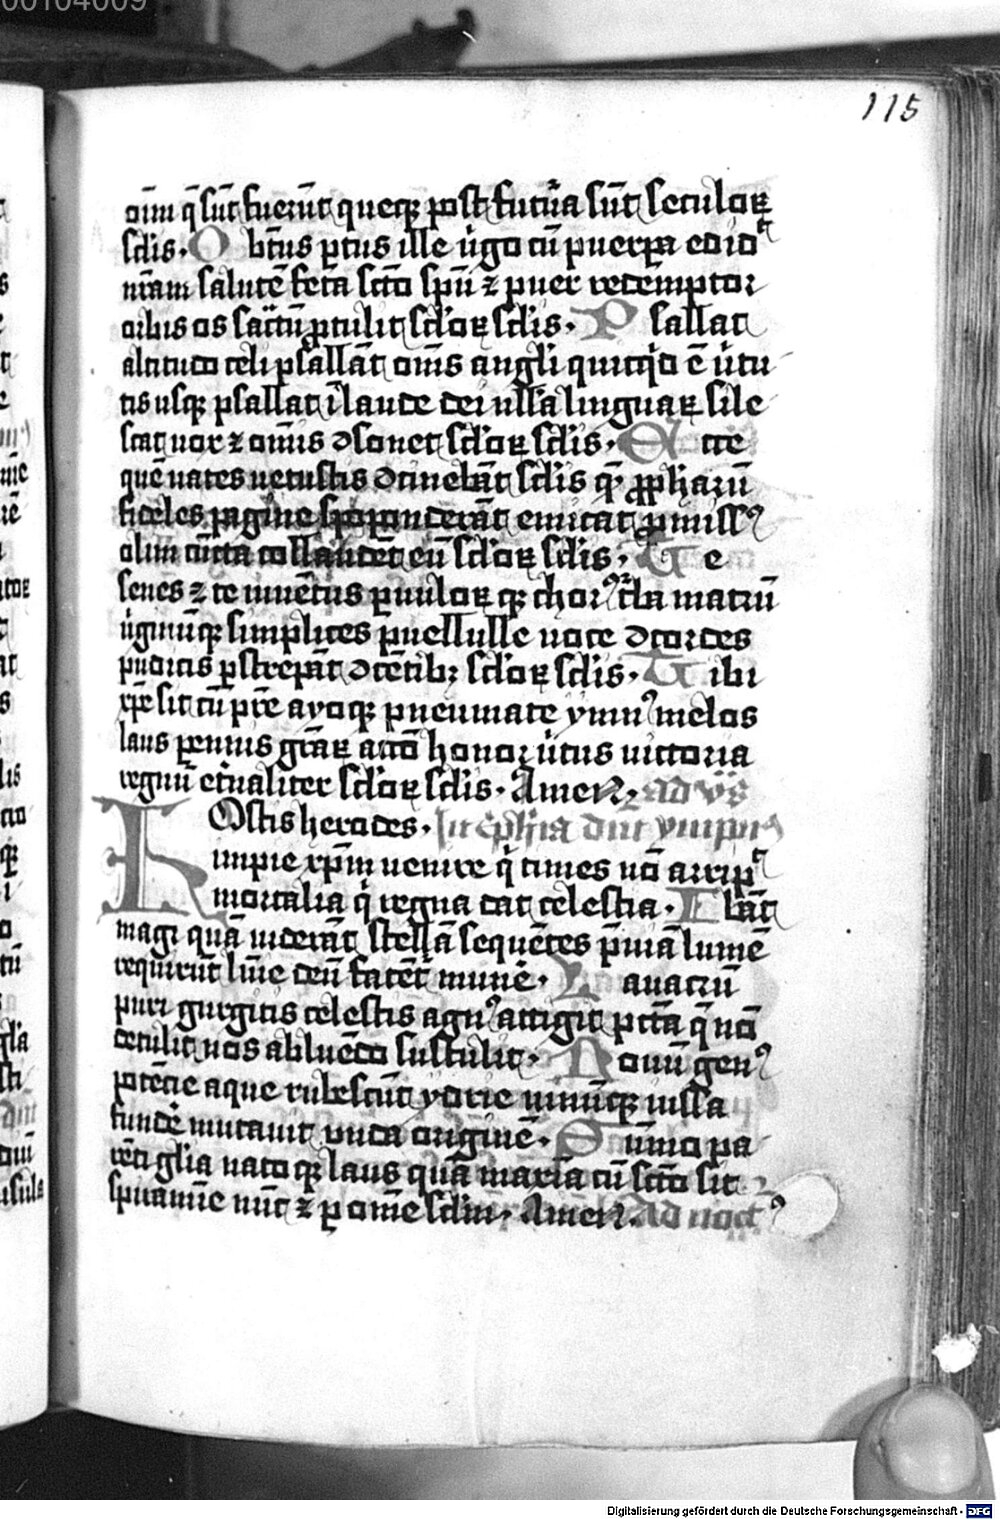 00104009
115
oīm q̄ sūt fuerūt queqꝫ post futura sūt seculoꝝ
sclis. O btūs ptus ille ūgo cū puerpa edidᵗ
nrām salutē feta scto spū ⁊ puer redēmptor
orbis os sacrū ꝓtulit scloꝝ sclis. P sallat
altitudo celi psallāt oms angli quicqͥd ē ūtu
tis usqꝫ psallat ī laude dei ulla linguaꝝ sile
scat uox ⁊ omis ꝯsonet scloꝝ sclis. E cce
quē uates uetustis ꝯcinebāt sclis qͣ ꝓphaꝝ
fideles pagine spoponderāt emicat ꝓmissꝰ
olim cūcta collaudēt eū scloꝝ sclis. T e
senes ⁊ te iuuētus ꝑuuloꝝ qꝫ chorꝰ tͬba matrū
ūginūqꝫ simplices puellulle uoce ꝯcordes
pudicis ꝑstrepāt ꝯcētibꝫ scloꝝ sclis. T ibi
xp̄e sit cū pr̄e ayoqꝫ pneumate ymnꝰ melos
laus ꝑennis grāꝝ actō honor ūtus uictoria
regnū et̄naliter scloꝝ sclis. Amen. ad vs̄
H Ostis herodes. In ep̄hia dn̄i ympnꝰ
impie xp̄m uenire qͥ times nō arripᵗ
mortalia qͥ regna dat celestia. I bāt
magi quā uiderāt stellā sequētes p̄uiā lumē
requirūt lūīe deū fatēt̄ mune. L auacrū
puri gurgitis celestis agnꝰ attigit pctā q̄ nō
detulit nos abluēdo sustulit. N ouū genꝰ
potēcie aque rubescūt ydrie uinūqꝫ iussa
fundē mutauit unda originē. S ūmo pa
rēti glīa natoqꝫ laus quā maxīa cū scto sit
spiramīe nūc ⁊ ꝑ omē sclm. Amen. Ad noctꝰ
Digitalisierung gefördert durch die Deutsche Forschungsgemeinschaft - DFG